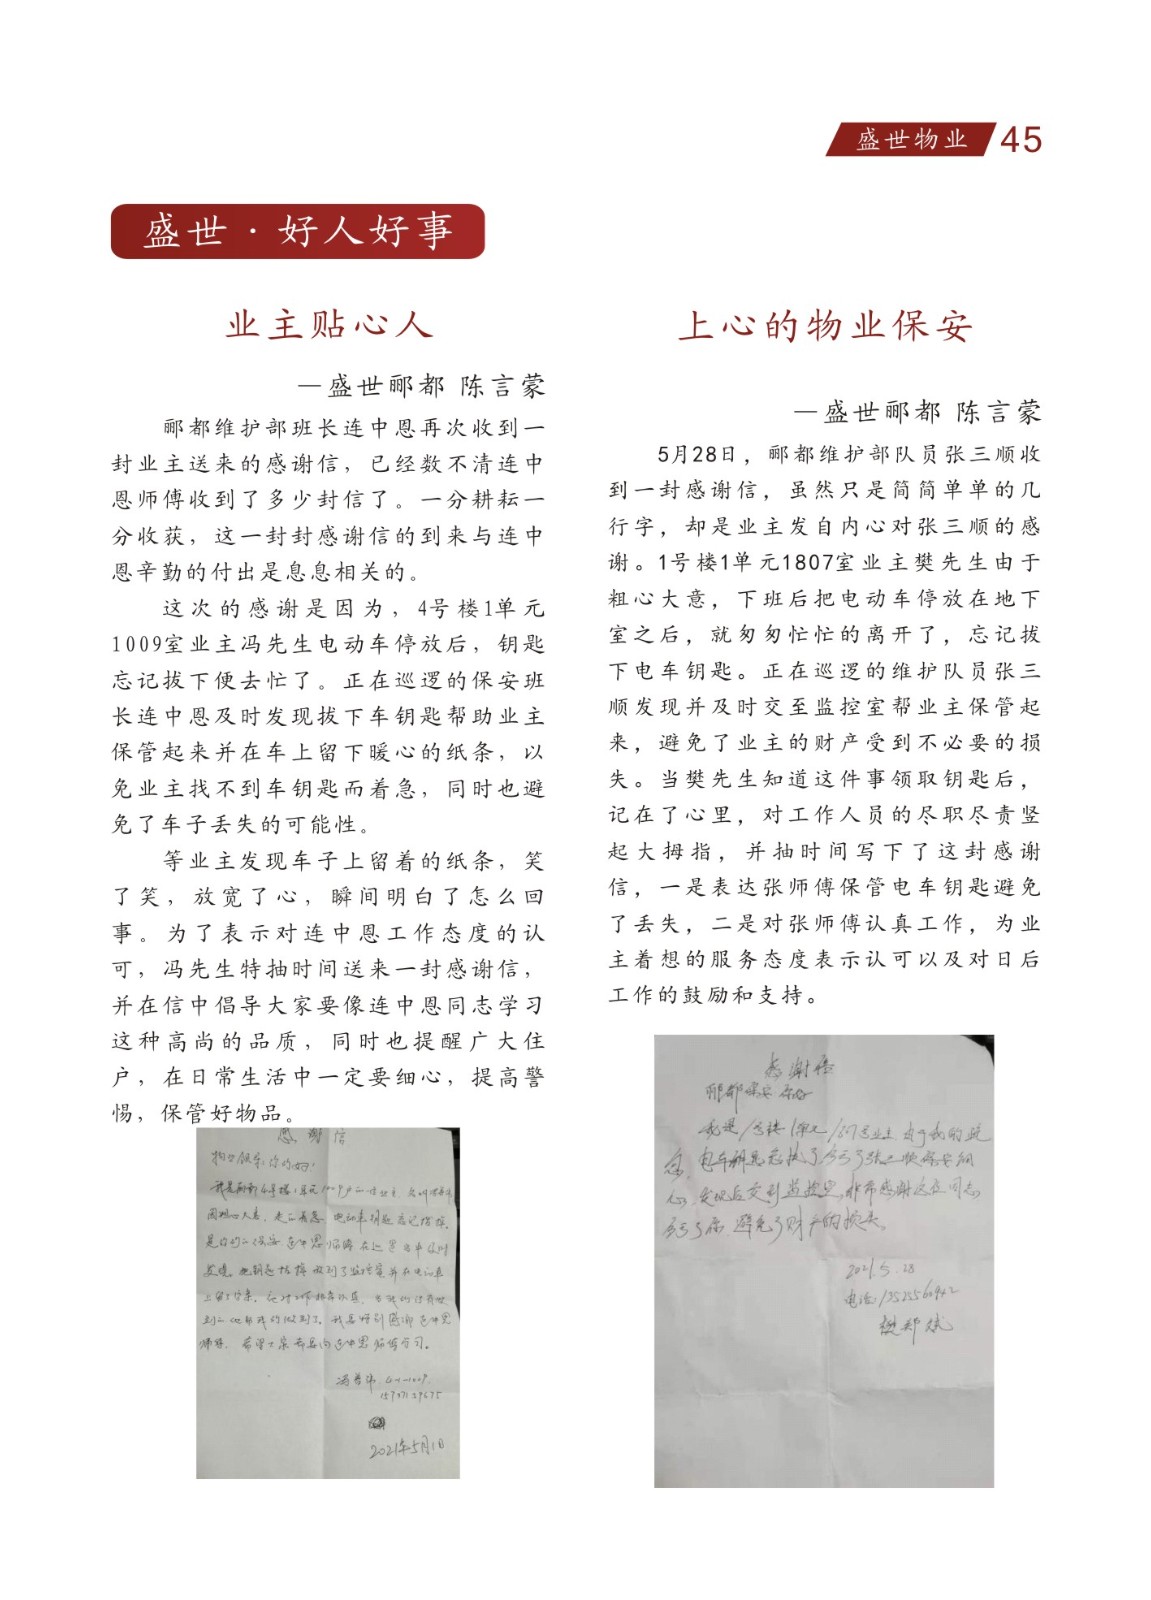 盛世物业 45
盛世·好人好事
业主贴心人
—盛世郦都 陈言蒙
郦都维护部班长连中恩再次收到一
封业主送来的感谢信，已经数不清连中
恩师傅收到了多少封信了。一分耕耘一
分收获，这一封封感谢信的到来与连中
恩辛勤的付出是息息相关的。
这次的感谢是因为，4号楼1单元
1009室业主冯先生电动车停放后，钥匙
忘记拔下便去忙了。正在巡逻的保安班
长连中恩及时发现拔下车钥匙帮助业主
保管起来并在车上留下暖心的纸条，以
免业主找不到车钥匙而着急，同时也避
免了车子丢失的可能性。
等业主发现车子上留着的纸条，笑
了笑，放宽了心，瞬间明白了怎么回
事。为了表示对连中恩工作态度的认
可，冯先生特抽时间送来一封感谢信，
并在信中倡导大家要像连中恩同志学习
这种高尚的品质，同时也提醒广大住
户，在日常生活中一定要细心，提高警
惕，保管好物品。
感谢信
2021年5月1日
上心的物业保安
—盛世郦都 陈言蒙
5月28日，郦都维护部队员张三顺收
到一封感谢信，虽然只是简简单单的几
行字，却是业主发自内心对张三顺的感
谢。1号楼1单元1807室业主樊先生由于
粗心大意，下班后把电动车停放在地下
室之后，就匆匆忙忙的离开了，忘记拔
下电车钥匙。正在巡逻的维护队员张三
顺发现并及时交至监控室帮业主保管起
来，避免了业主的财产受到不必要的损
失。当樊先生知道这件事领取钥匙后，
记在了心里，对工作人员的尽职尽责竖
起大拇指，并抽时间写下了这封感谢
信，一是表达张师傅保管电车钥匙避免
了丢失，二是对张师傅认真工作，为业
主着想的服务态度表示认可以及对日后
工作的鼓励和支持。
感谢信
郦都保安 你好
我是1号楼1单元
发现后交到监控室，非常感谢这位同志
避免了财产的损失。
2021.5.28
电话: